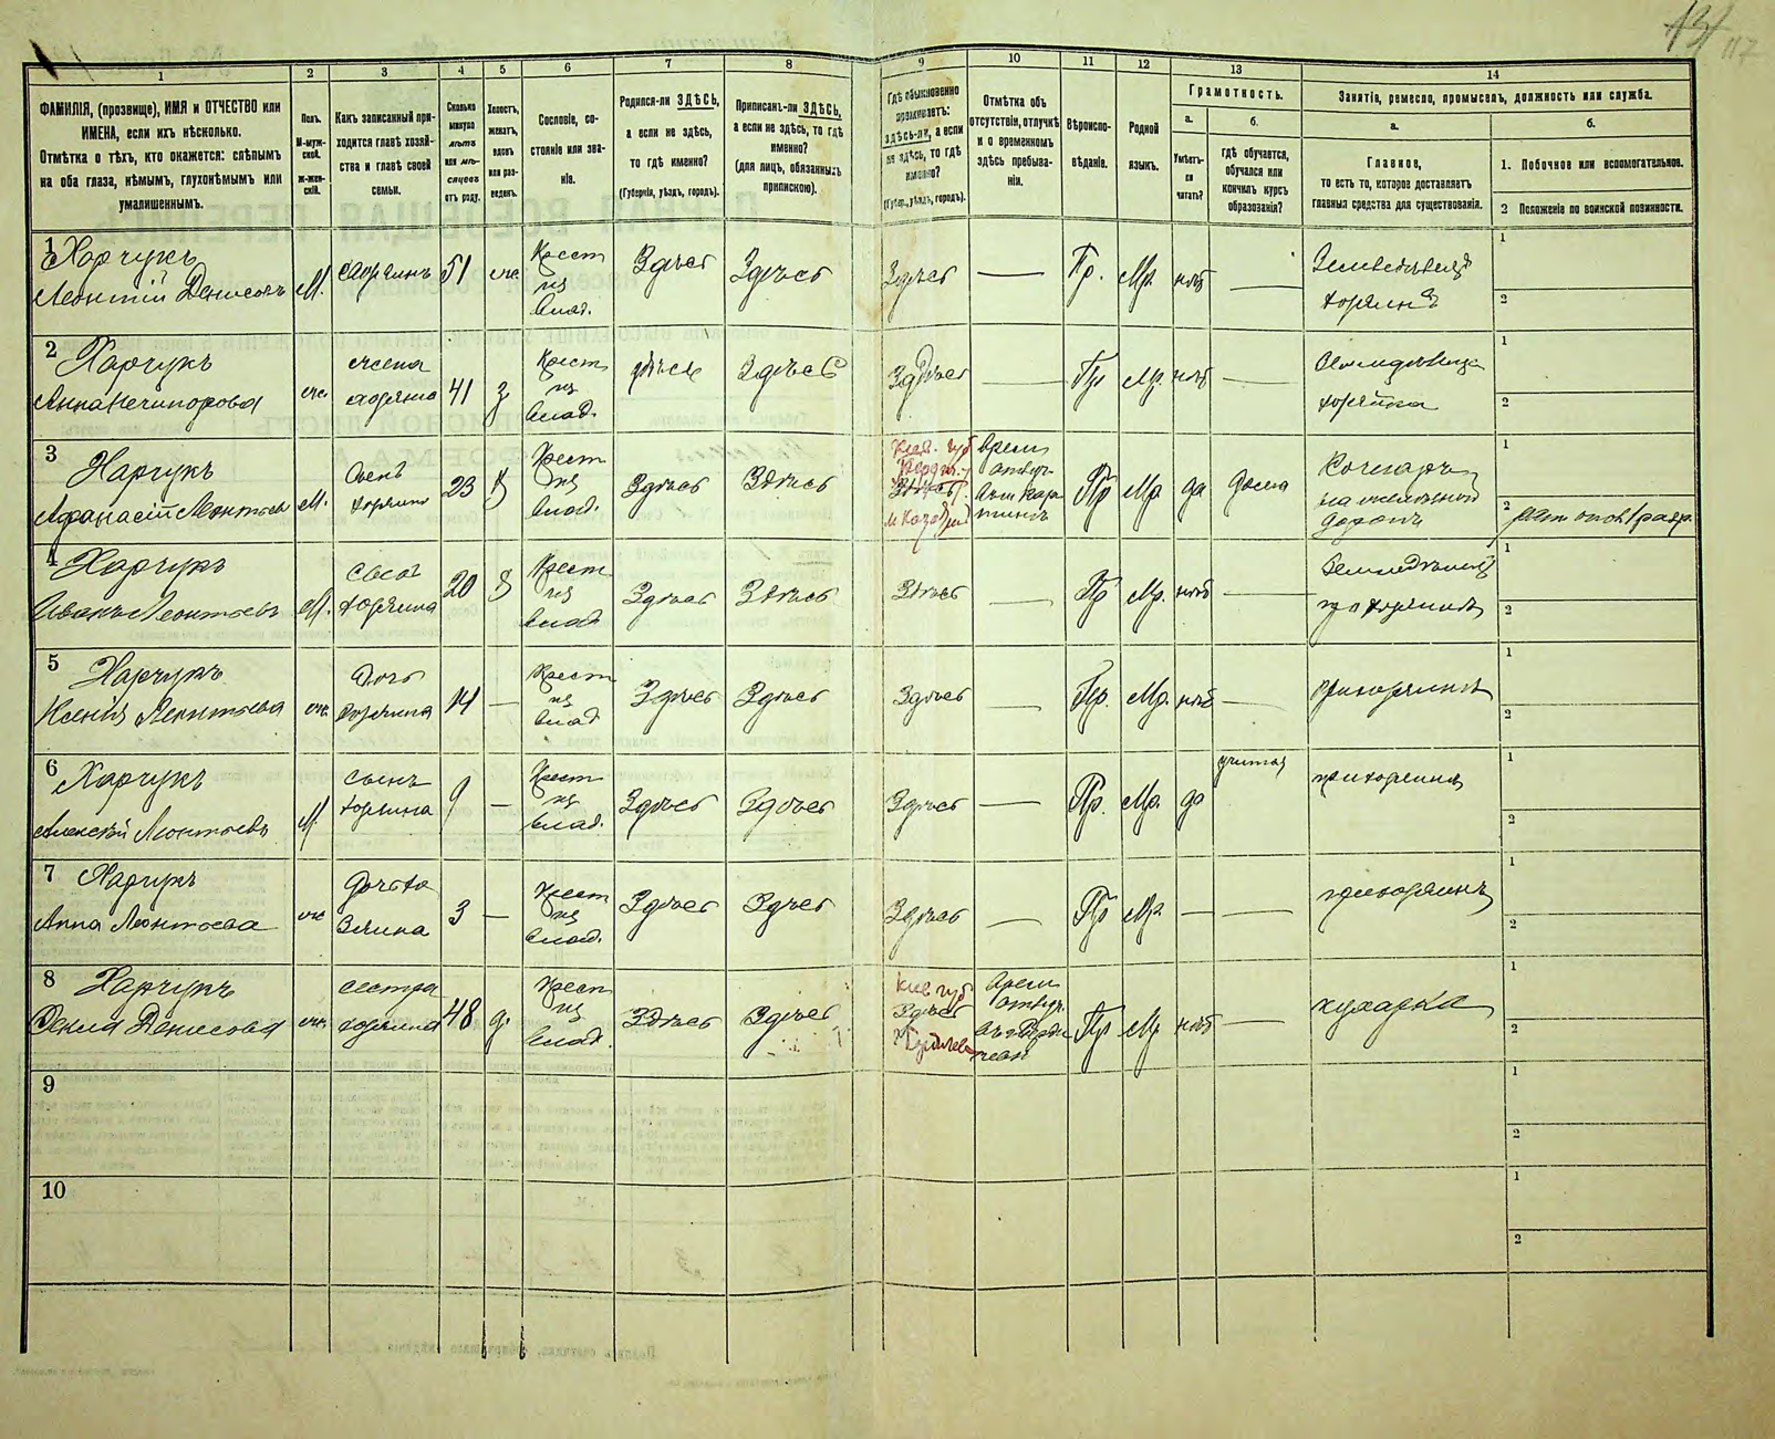 131
117
1
2
3
4
5
6
7
8
9
10
11
12
13
14
ФАМИЛІЯ, (прозвище), ИМЯ и ОТЧЕСТВО или
ИМЕНА, если ихъ нѣсколько.
Отмѣтка о тѣхъ, кто окажется: слѣпымъ
на оба глаза, нѣмымъ, глухонѣмымъ или
умалишеннымъ.
Полъ.
М-муж-
ской.
Ж-жен-
скій.
Какъ записанный при-
ходится главѣ хозяй-
ства и главѣ своей
семьи.
Сколько
минуло
лѣтъ
или мѣ-
сяцевъ
отъ роду.
Холостъ,
женатъ,
вдовъ
или раз-
веденъ.
Сословіе, со-
стояніе или зва-
ніе.
Родился-ли ЗДѢСЬ,
а если не здѣсь,
то гдѣ именно?
(Губернія, уѣздъ, городъ).
Приписанъ-ли ЗДѢСЬ,
а если не здѣсь, то гдѣ
именно?
(для лицъ, обязанныхъ
припискою).
Гдѣ обыкновенно
проживаетъ:
здѣсь-ли, а если
не здѣсь, то гдѣ
именно?
(Губер., уѣздъ, городъ).
Отмѣтка объ
отсутствіи, отлучкѣ
и о временномъ
здѣсь пребыва-
ніи.
Вѣроиспо-
вѣданіе.
Родной
языкъ.
Грамотность.
а.
Умѣетъ-
ли
читать?
б.
гдѣ обучается,
обучался или
кончилъ курсъ
образованія?
Занятія, ремесло, промыселъ, должность или служба.
а.
Главное,
то есть то, которое доставляетъ
главныя средства для существованія.
б.
1. Побочное или вспомогательное.
2 Положеніе по воинской повинности.
1 Харчукъ
Леонтій Денисовъ
М.
хозяинъ
51
же
Крест
из
влад.
Здѣсь
Здѣсь
Здѣсь
—
Пр.
Мр.
нѣт
—
хозяинъ
1
2
2 Харчукъ
Анна Нечипорова
же.
жена
хозяина
41
з
Крест
из
влад.
Здѣсь
Здѣсь
—
Пр
Мр.
нѣт
—
хозяйка
1
2
3 Харчукъ
Афанасій Леонтьевъ
М.
Сынъ
хозяина
23
Крест
из
влад.
Здѣсь
Здѣсь
Кіев. губ
Бердич. у
Здѣсь
врем
отлуч
Пр
Мр
да
дома
Кочегаръ
на желѣзной
дорогѣ
1
2
4 Харчукъ
Иванъ Леонтьевъ
М.
Сынъ
хозяина
20
Крест
из
влад
Здѣсь
Здѣсь
Здѣсь
—
Пр
Мр.
нѣт
—
1
2
5 Харчукъ
Ксенія Леонтьева
же.
Дочь
хозяина
14
—
Крест
из
влад
Здѣсь
Здѣсь
Здѣсь
—
Пр.
Мр.
нѣт
—
при хозяинѣ
1
2
6 Харчукъ
Алексѣй Леонтьевъ
М
сынъ
хозяина
9
—
Крест
из
влад.
Здѣсь
Здѣсь
Здѣсь
—
Пр.
Мр.
да
при хозяинѣ
1
2
7 Харчукъ
Анна Леонтьева
же
Дочь хо
зяина
3
—
Крест
из
влад.
Здѣсь
Здѣсь
Здѣсь
—
Пр
Мр.
—
—
при хозяинѣ
1
2
8 Харчукъ
Фекла Денисова
же.
сестра
хозяина
48
д.
Крест
из
влад.
Здѣсь
Здѣсь
Кіев губ
Здѣсь
врем
отлуч.
Пр
Мр
нѣт
—
кухарка
1
2
9
1
2
10
1
2